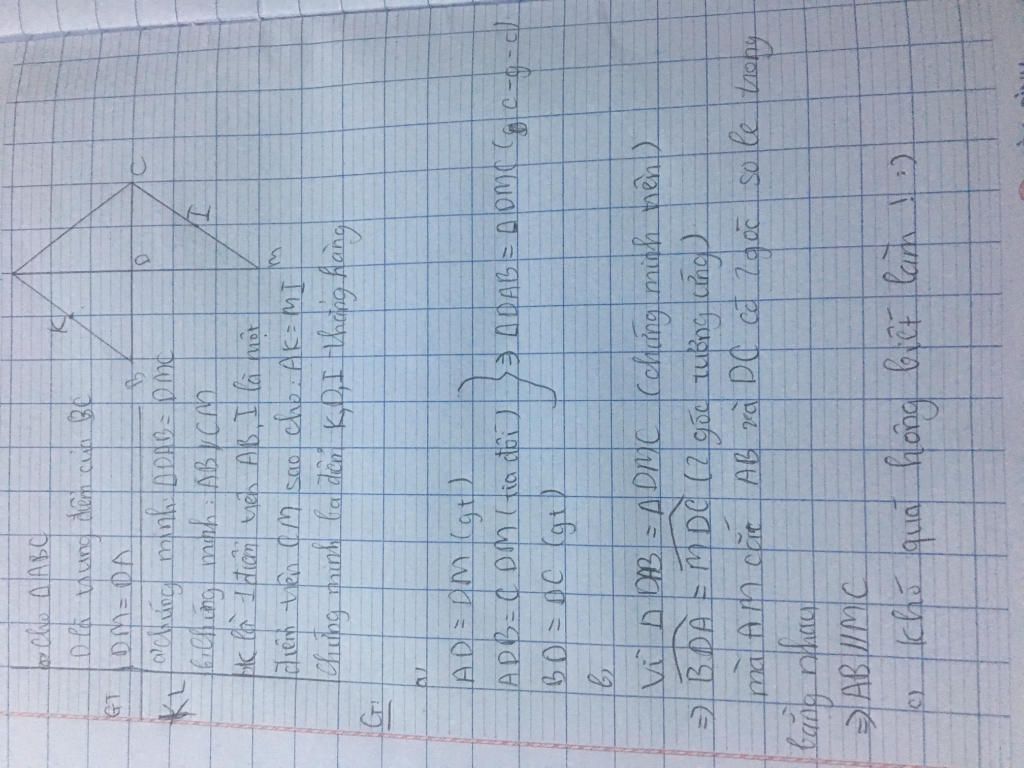 Cho ΔABC
GT
D là trung điểm của BC
DM = DA
KL
a. Chứng minh: ΔDAB = DMC
b. Chứng minh: AB // CM
K là 1 điểm trên AB, I là một
điểm trên CM sao cho: AK = MI
Chứng minh ba điểm K, D, I thẳng hàng
K
C
D
I
B
M
Gi
a,
AD = DM (gt)
ADB = CDM (tia đối) } => ΔDAB = ΔDMC (c-g-c)
BD = DC (gt)
b,
Vì ΔDAB = ΔDMC (chứng minh trên)
=> BDA = MDC (2 góc tương ứng)
mà AM cắt AB và DC có 2 góc so le trong
bằng nhau
=> AB // MC
c) Khó quá hông biết làm! :)